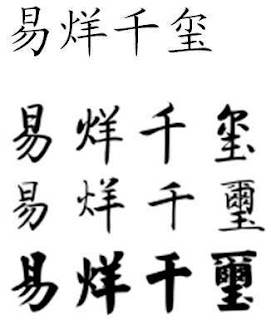 易烊千玺
易烊千玺
易烊千璽
易烊千璽